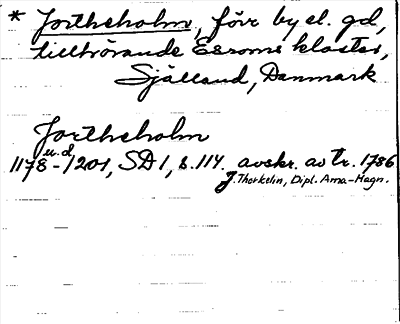 * Jortheholm, förr by el. gd,
tillhörande Esroms kloster,
Själland, Danmark
Jortheholm
u.d.
1178-1201, SD 1, s. 114. avskr. av tr. 1786
J. Thorkelin, Dipl. Arna-Magn.